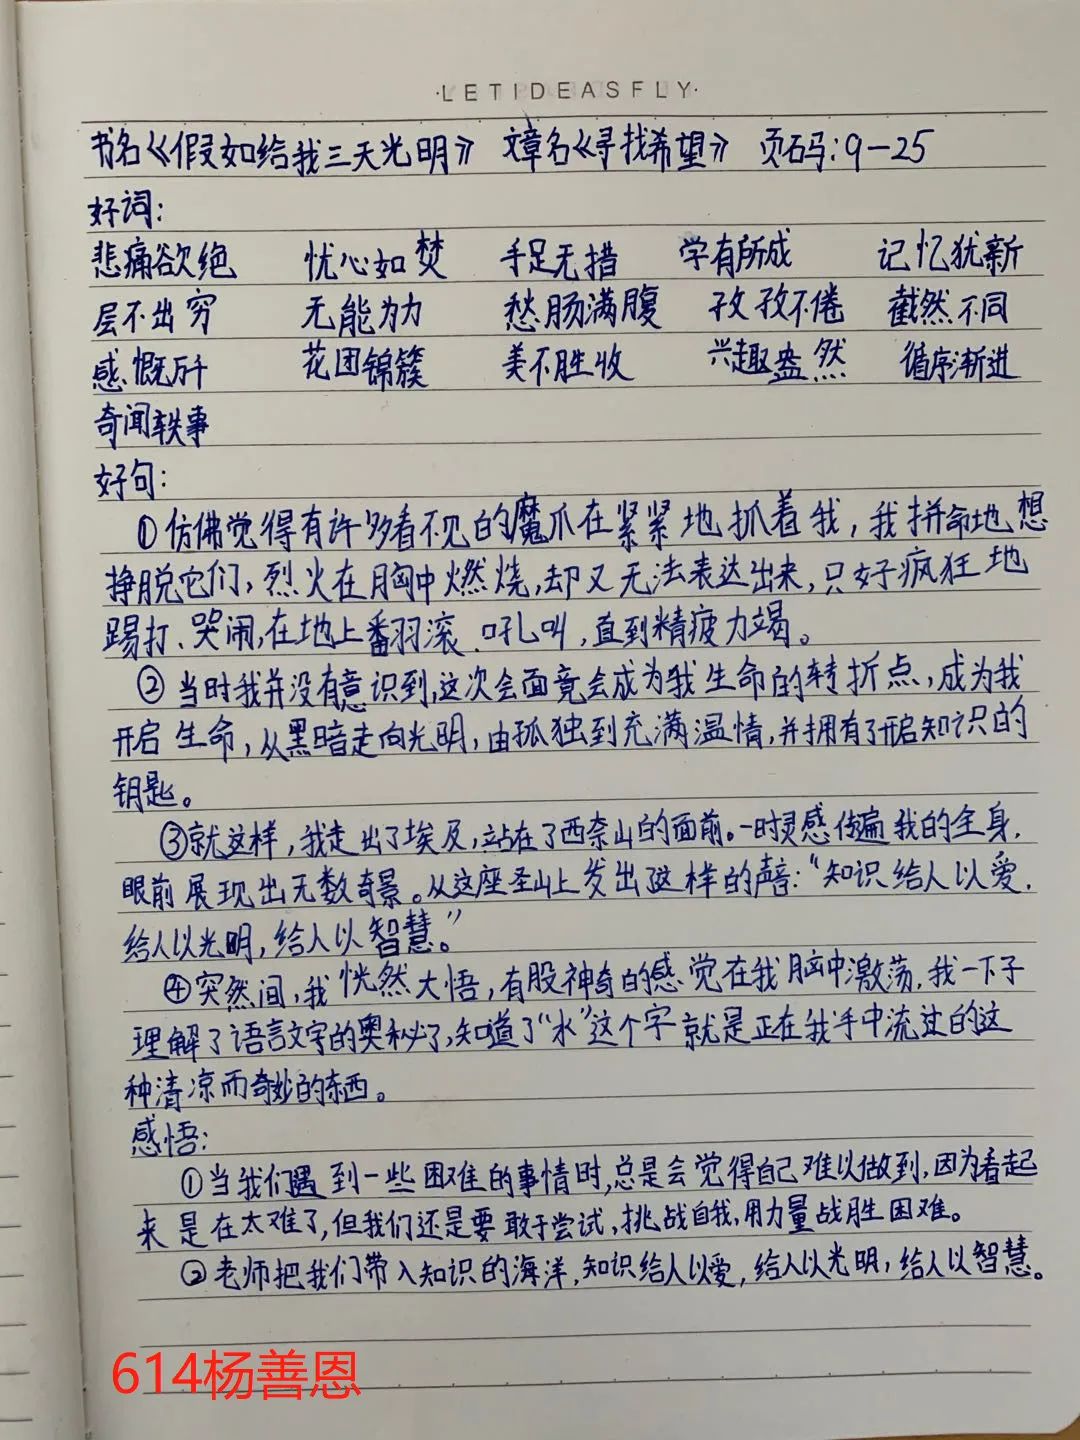 ·LETIDEASFLY·
书名《假如给我三天光明》 文章名《寻找希望》 页码:9-25
好词:
悲痛欲绝 忧心如焚 手足无措 学有所成 记忆犹新
层不出穷 无能为力 愁肠满腹 孜孜不倦 截然不同
感慨万千 花团锦簇 美不胜收 兴趣盎然 循序渐进
奇闻轶事
好句:
①仿佛觉得有许多看不见的魔爪在紧紧地抓着我,我拼命地想
挣脱它们,烈火在胸中燃烧,却又无法表达出来,只好疯狂地
踢打、哭闹,在地上翻滚、吼叫,直到精疲力竭。
②当时我并没有意识到,这次会面竟会成为我生命的转折点,成为我
开启生命,从黑暗走向光明,由孤独到充满温情,并拥有了开启知识的
钥匙。
③就这样,我走出了埃及,站在了西奈山的面前。一时灵感传遍我的全身,
眼前展现出无数奇景。从这座圣山上发出了这样的声音:“知识给人以爱,
给人以光明,给人以智慧。”
④突然间,我恍然大悟,有股神奇的感觉在我脑中激荡,我一下子
理解了语言文字的奥秘了,知道了“水”这个字就是正在我手中流过的这
种清凉而奇妙的东西。
感悟:
①当我们遇到一些困难的事情时,总是会觉得自己难以做到,因为看起
来是在太难了,但我们还是要敢于尝试,挑战自我,用力量战胜困难。
②老师把我们带入知识的海洋,知识给人以爱,给人以光明,给人以智慧。
614杨善恩